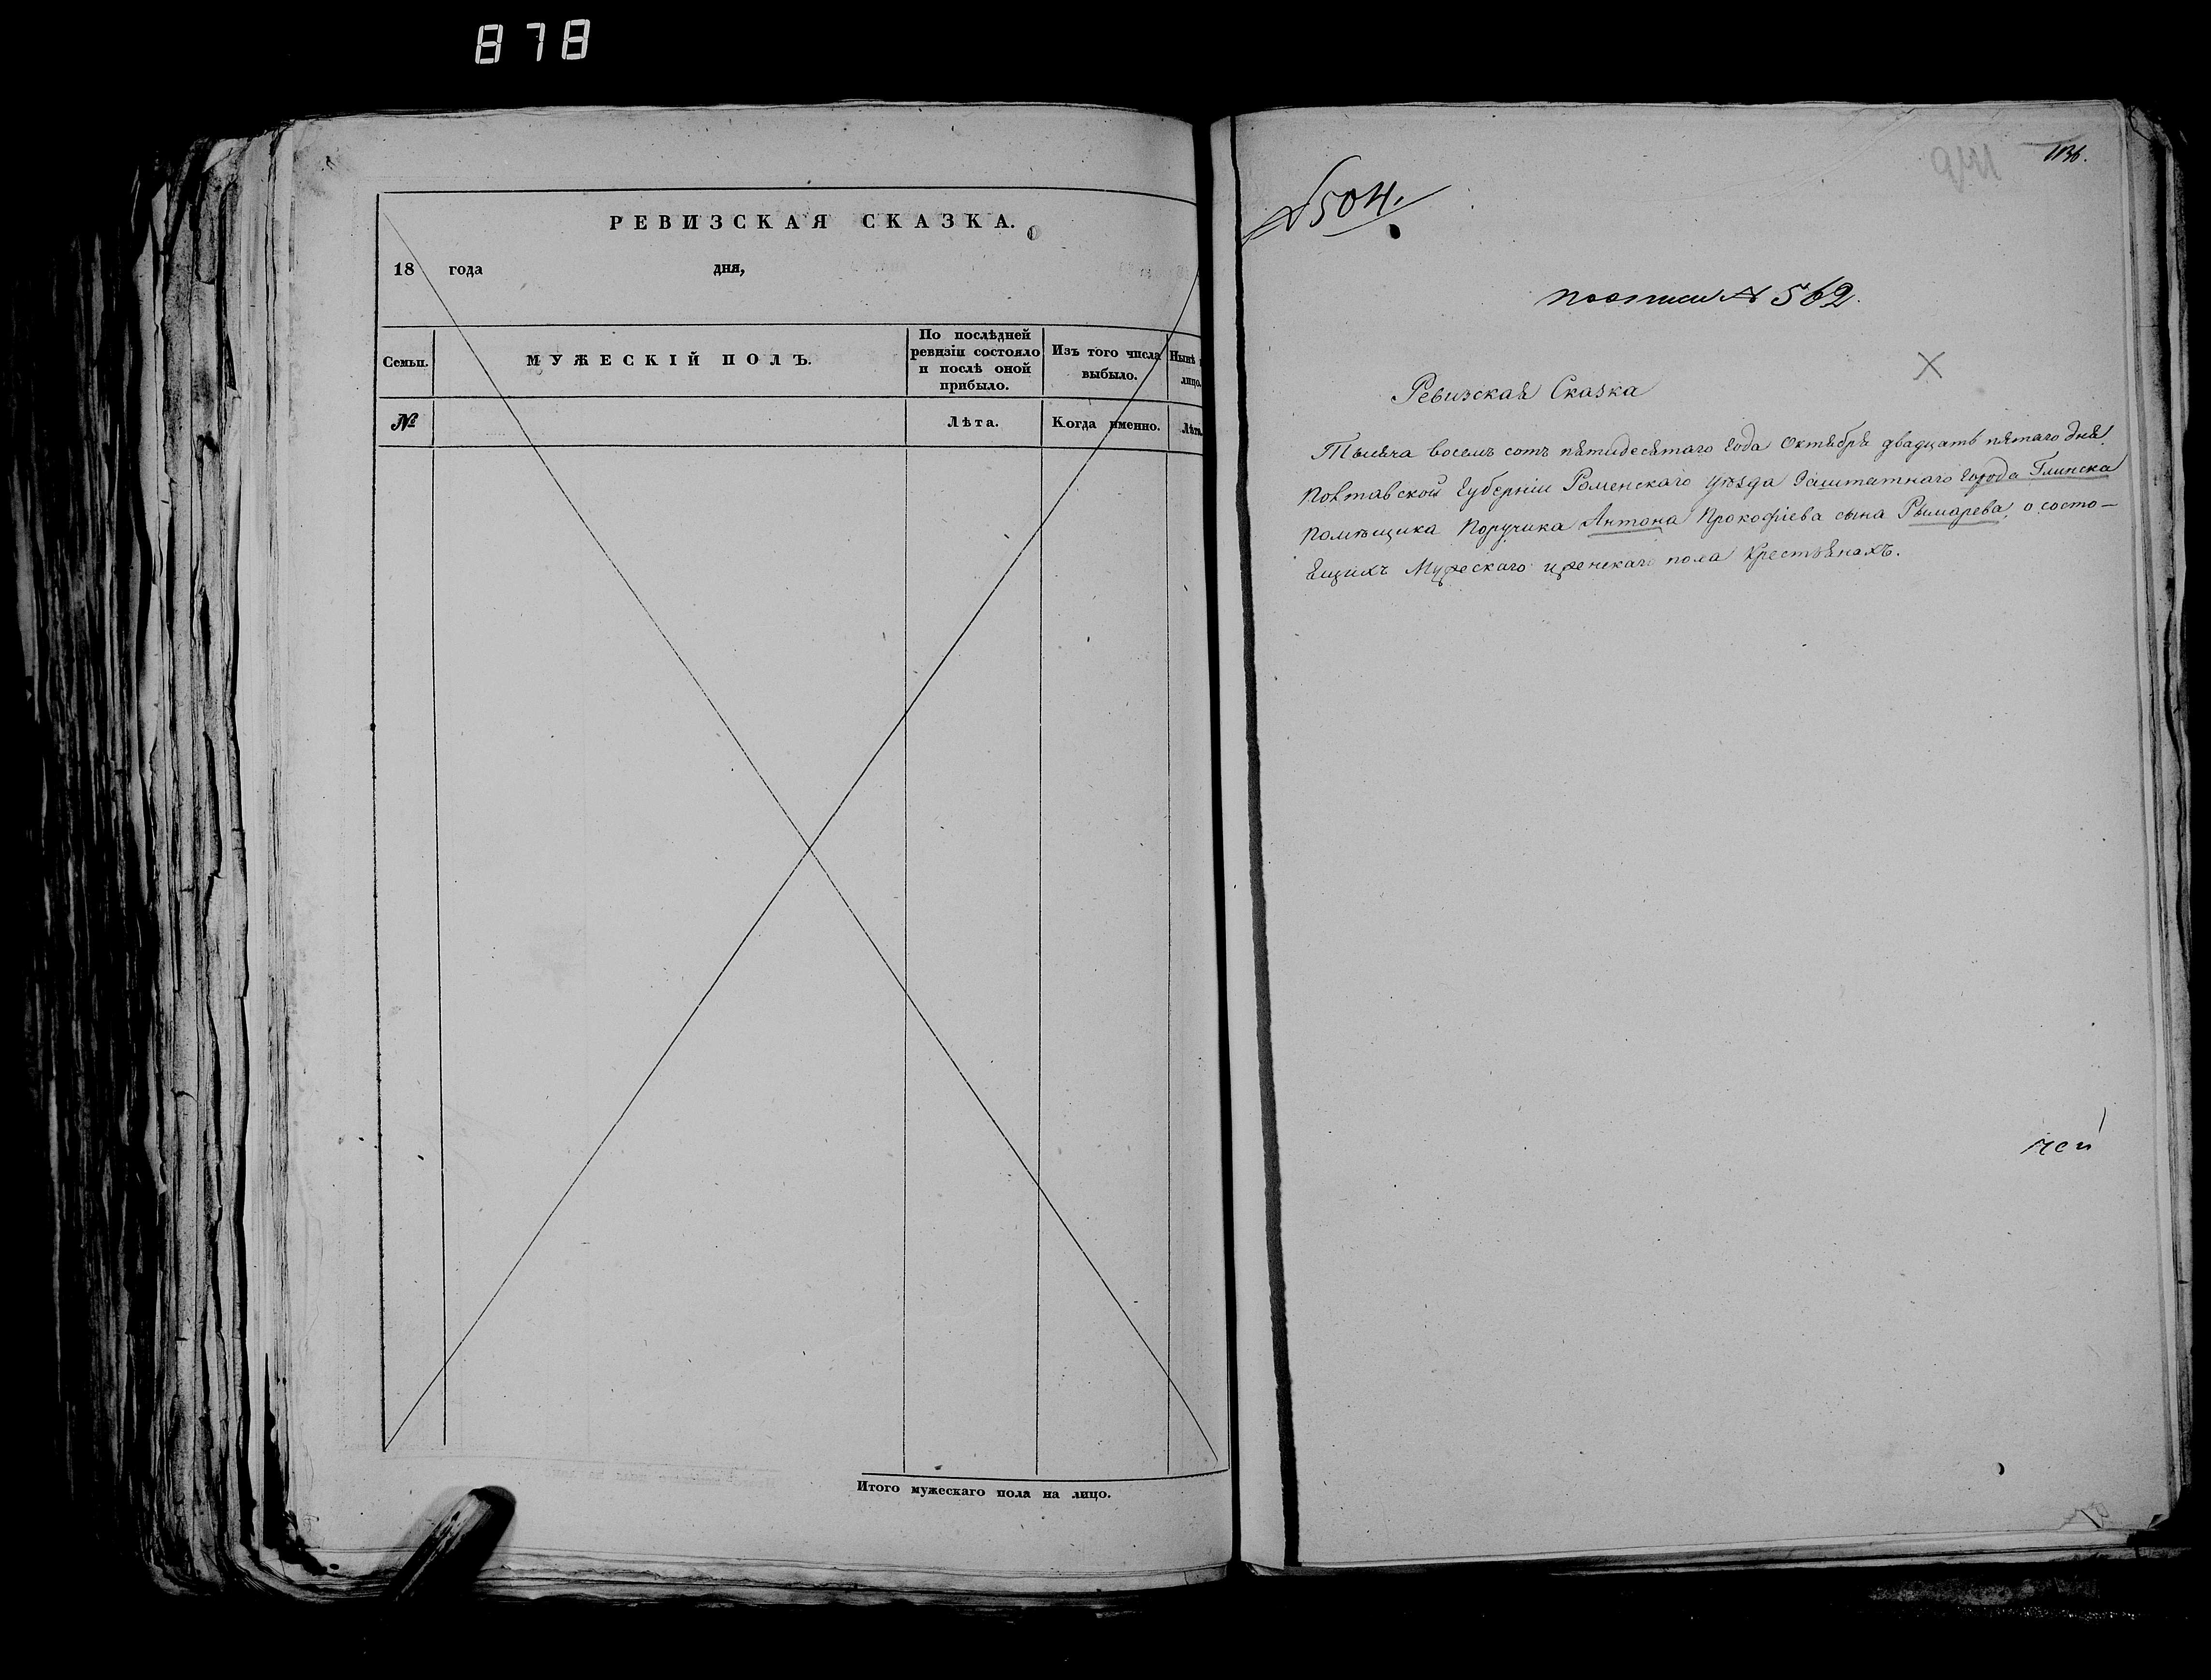 878
РЕВИЗСКАЯ СКАЗКА.
18 года дня,
Семьи.
МУЖЕСКІЙ ПОЛЪ.
По послѣдней ревизіи состояло и послѣ оной прибыло.
Изъ того числа выбыло.
Нынѣ
лицо.
№
Лѣта.
Когда именно.
Лѣта.
Итого мужескаго пола на лицо.
1136.
941
№504.
по описи № 562.
Ревизская Сказка
Тысяча восемъ сотъ пятидесятаго года Октября двадцать пятаго дня.
Полтавской Губерніи Роменскаго уѣзда Заштатнаго города Глинска
Помѣщика Поручика Антона Прокофіева сына Рымарева, о состо-
ящихъ Мужескаго и женскаго пола Крестьянахъ.